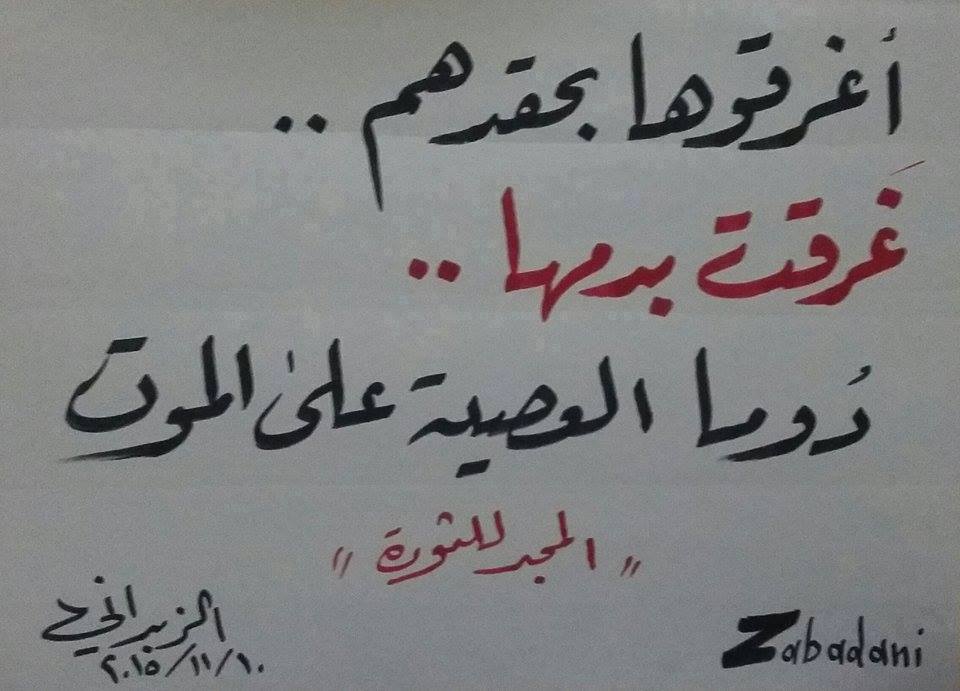 أغرقوها بحقدهم ..
غَرقت بدمها ..
دُوما العصية علىٰ الموت
"المجد للثورة"
الزبداني
٢٠١٥/١١/١٠
Zabadani